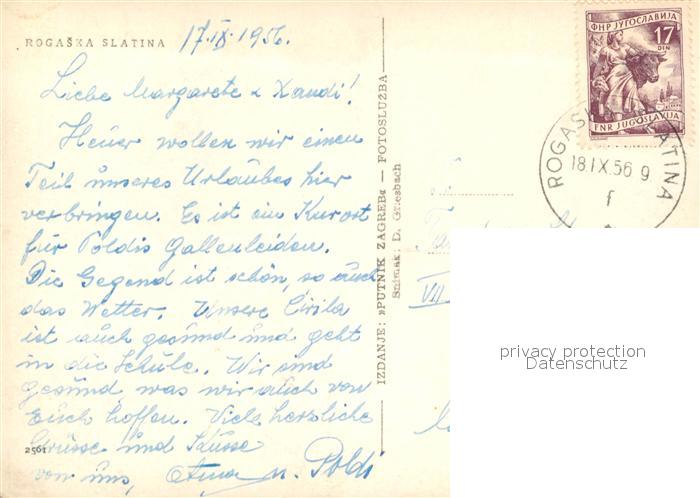 ROGAŠKA SLATINA 17.IX.1956.
Liebe Margarete & Xandi!
Heuer wollen wir einen
Teil unseres Urlaubes hier
verbringen. Es ist ein Kurort
für Poldis Gallenleiden.
Die Gegend ist schön, so auch
das Wetter. Unsere Cirila
ist auch gesund und geht
in die Schule. Wir sind
gesund was wir auch von
Euch hoffen. Viele herzliche
Grüsse und Küsse
von uns, u. Poldi
2561
IZDANJE: »PUTNIK ZAGREB« — FOTOSLUŽBA
Snimak: D. Griesbach
ФНР ЈУГОСЛАВИЈА
17
DIN
FNR JUGOSLAVIJA
ROGAŠKA SLATINA
18.IX.56 9
f
VII
privacy protection
Datenschutz